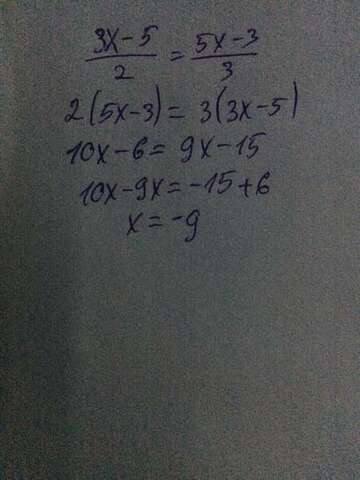 (3x-5)/2 = (5x-3)/3
2(5x-3) = 3(3x-5)
10x-6 = 9x-15
10x-9x = -15+6
x = -9